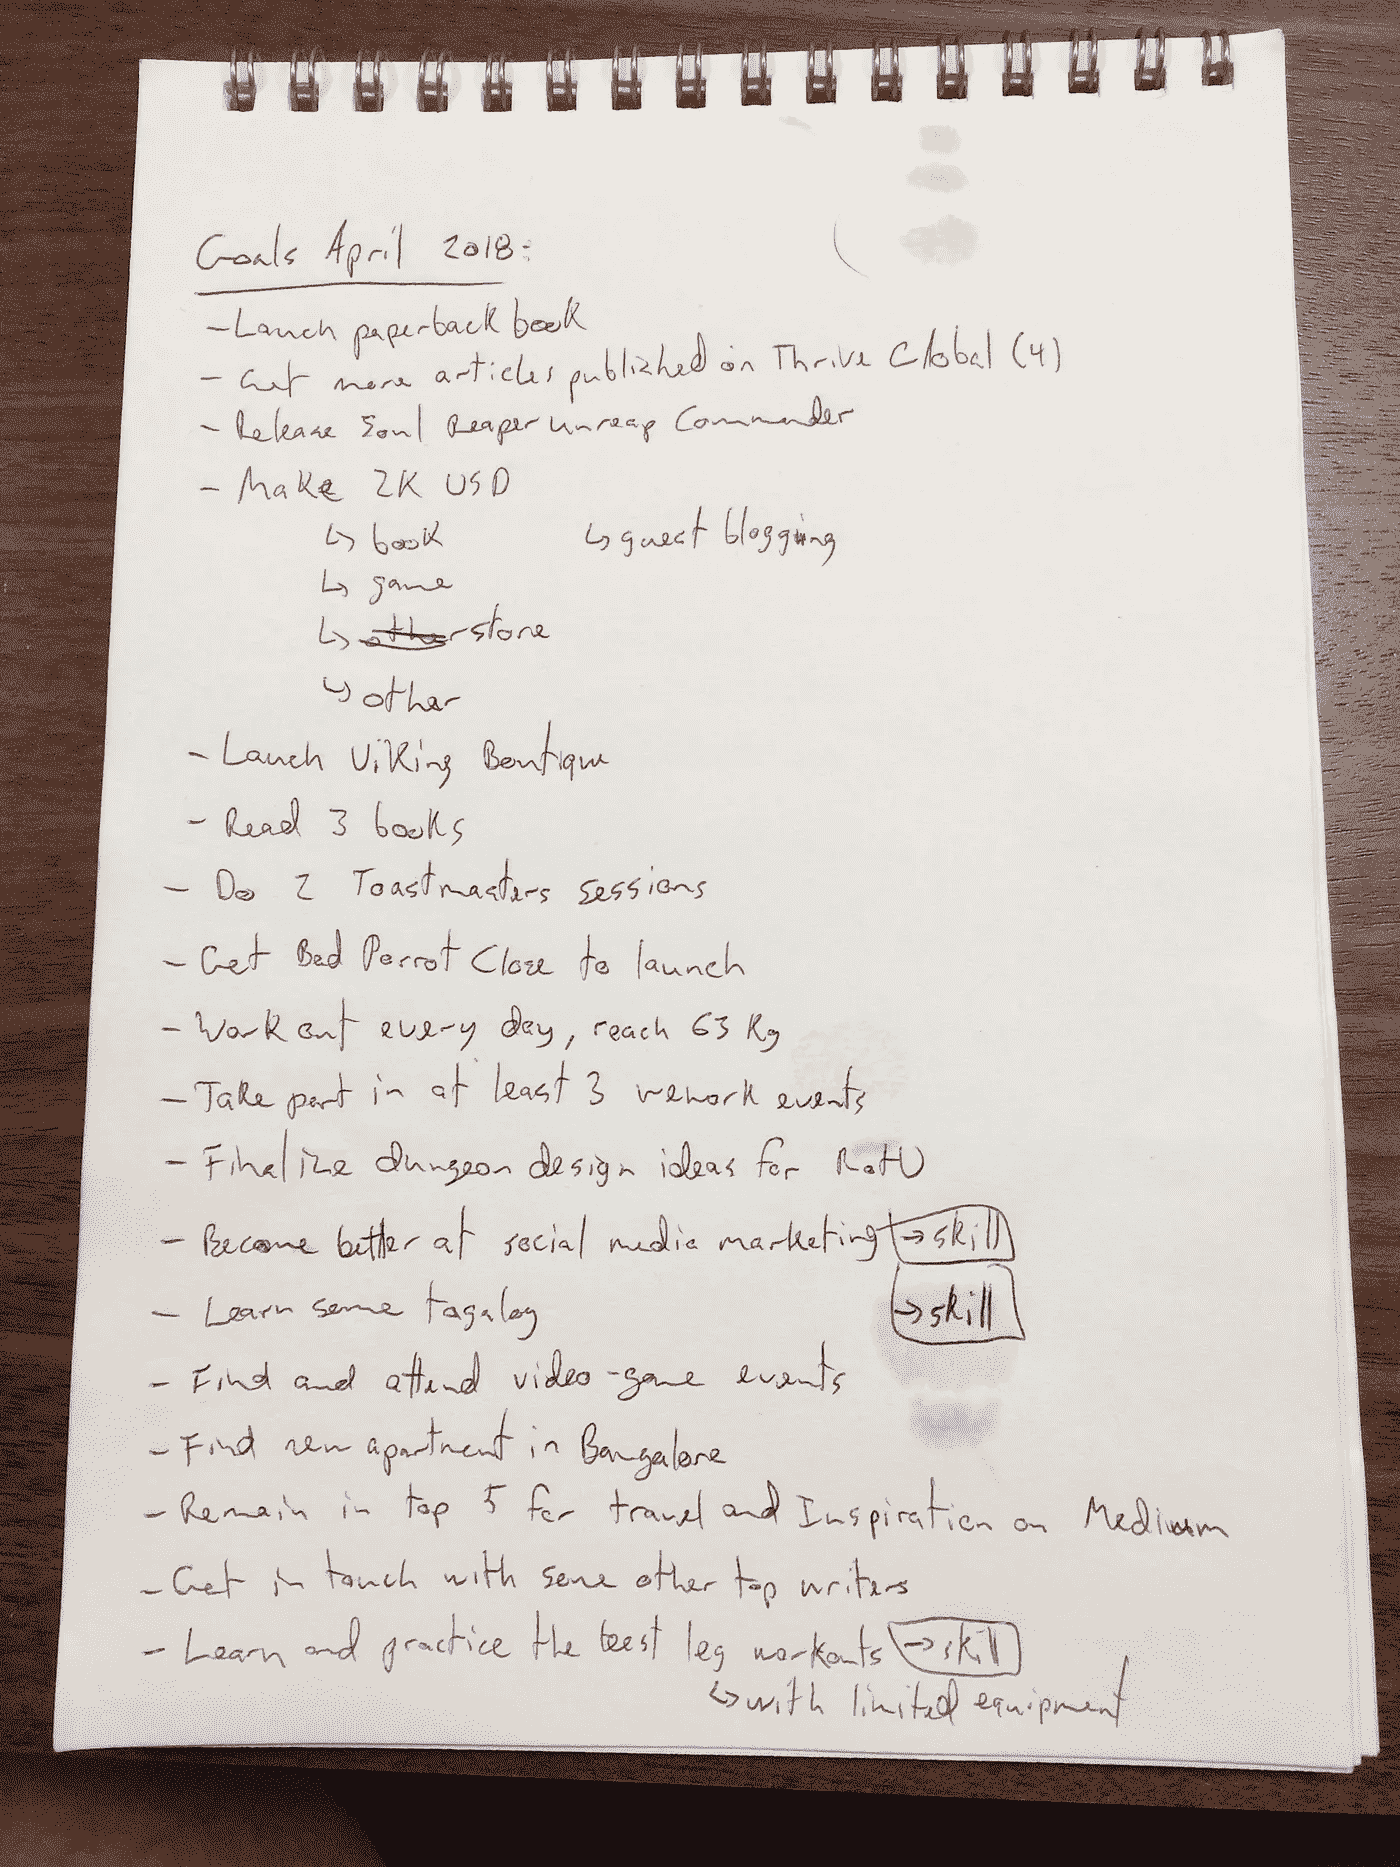 Goals April 2018:
- Launch paperback book
- Get more articles published on Thrive Global (4)
- Release Soul Reaper Unreap Commander
- Make 2K USD
↳ book ↳ guest blogging
↳ game
↳ other store
↳ other
- Launch Viking Boutique
- Read 3 books
- Do 2 Toastmasters sessions
- Get Bad Parrot Close to launch
- Work out every day, reach 63 Kg
- Take part in at least 3 wework events
- Finalize dungeon design ideas for RotU
- Become better at social media marketing → skill
- Learn some tagalog → skill
- Find and attend video-game events
- Find new apartment in Bangalore
- Remain in top 5 for travel and Inspiration on Medium
- Get in touch with some other top writers
- Learn and practice the best leg workouts → skill
↳ with limited equipment